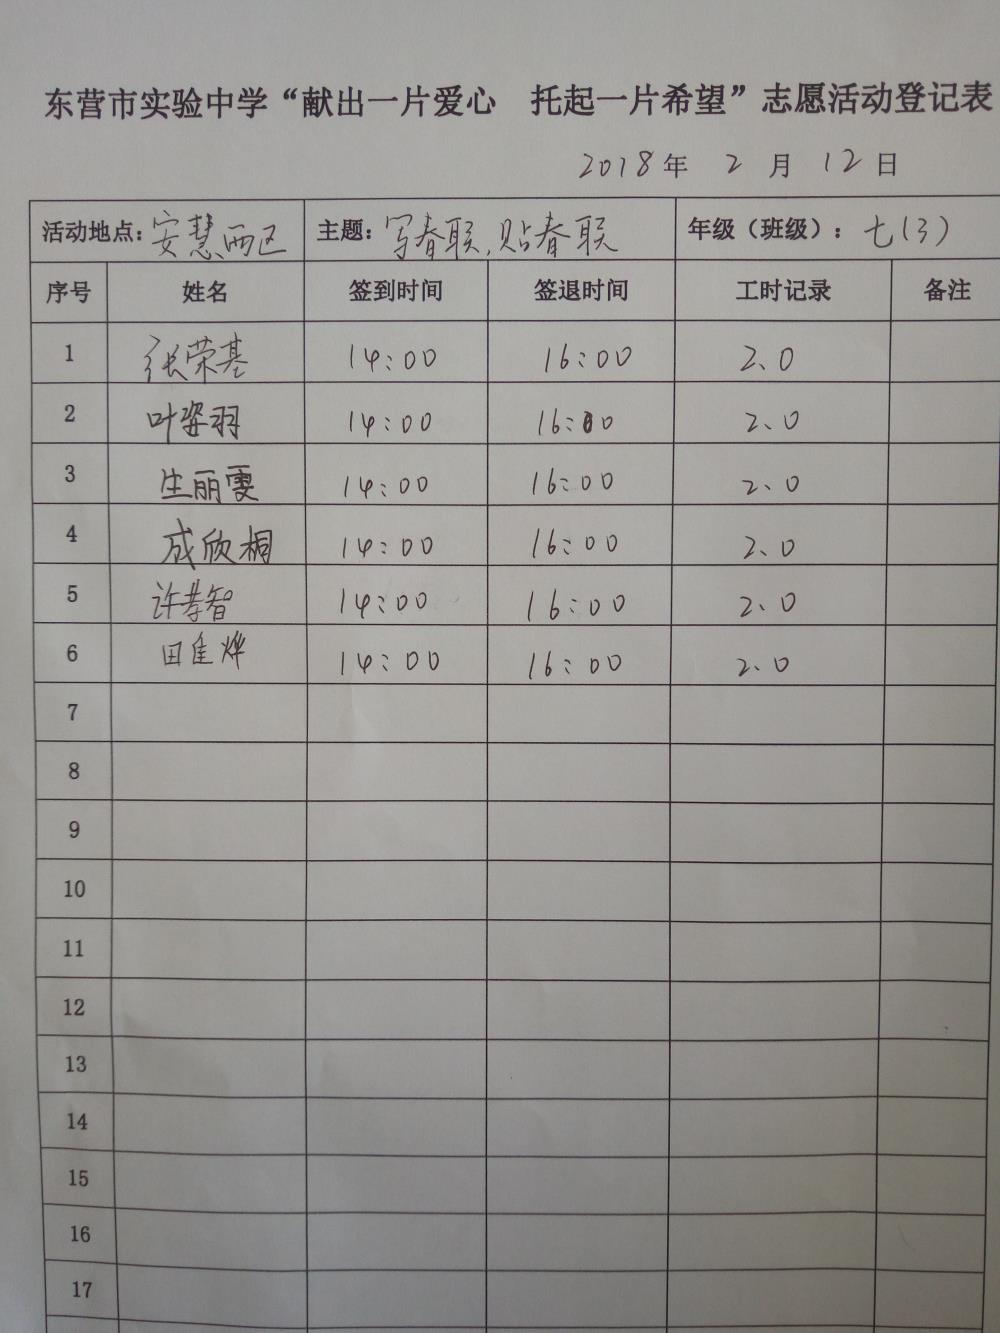 东营市实验中学“献出一片爱心 托起一片希望”志愿活动登记表
2018年 2 月 12日
活动地点：安慧西区 主题：写春联、贴春联 年级（班级）：七(3)
序号 姓名 签到时间 签退时间 工时记录 备注
1 张荣基 14:00 16:00 2.0
2 叶姿羽 14:00 16:00 2.0
3 生丽雯 14:00 16:00 2.0
4 成欣桐 14:00 16:00 2.0
5 许孝智 14:00 16:00 2.0
6 田隹烨 14:00 16:00 2.0
7
8
9
10
11
12
13
14
15
16
17